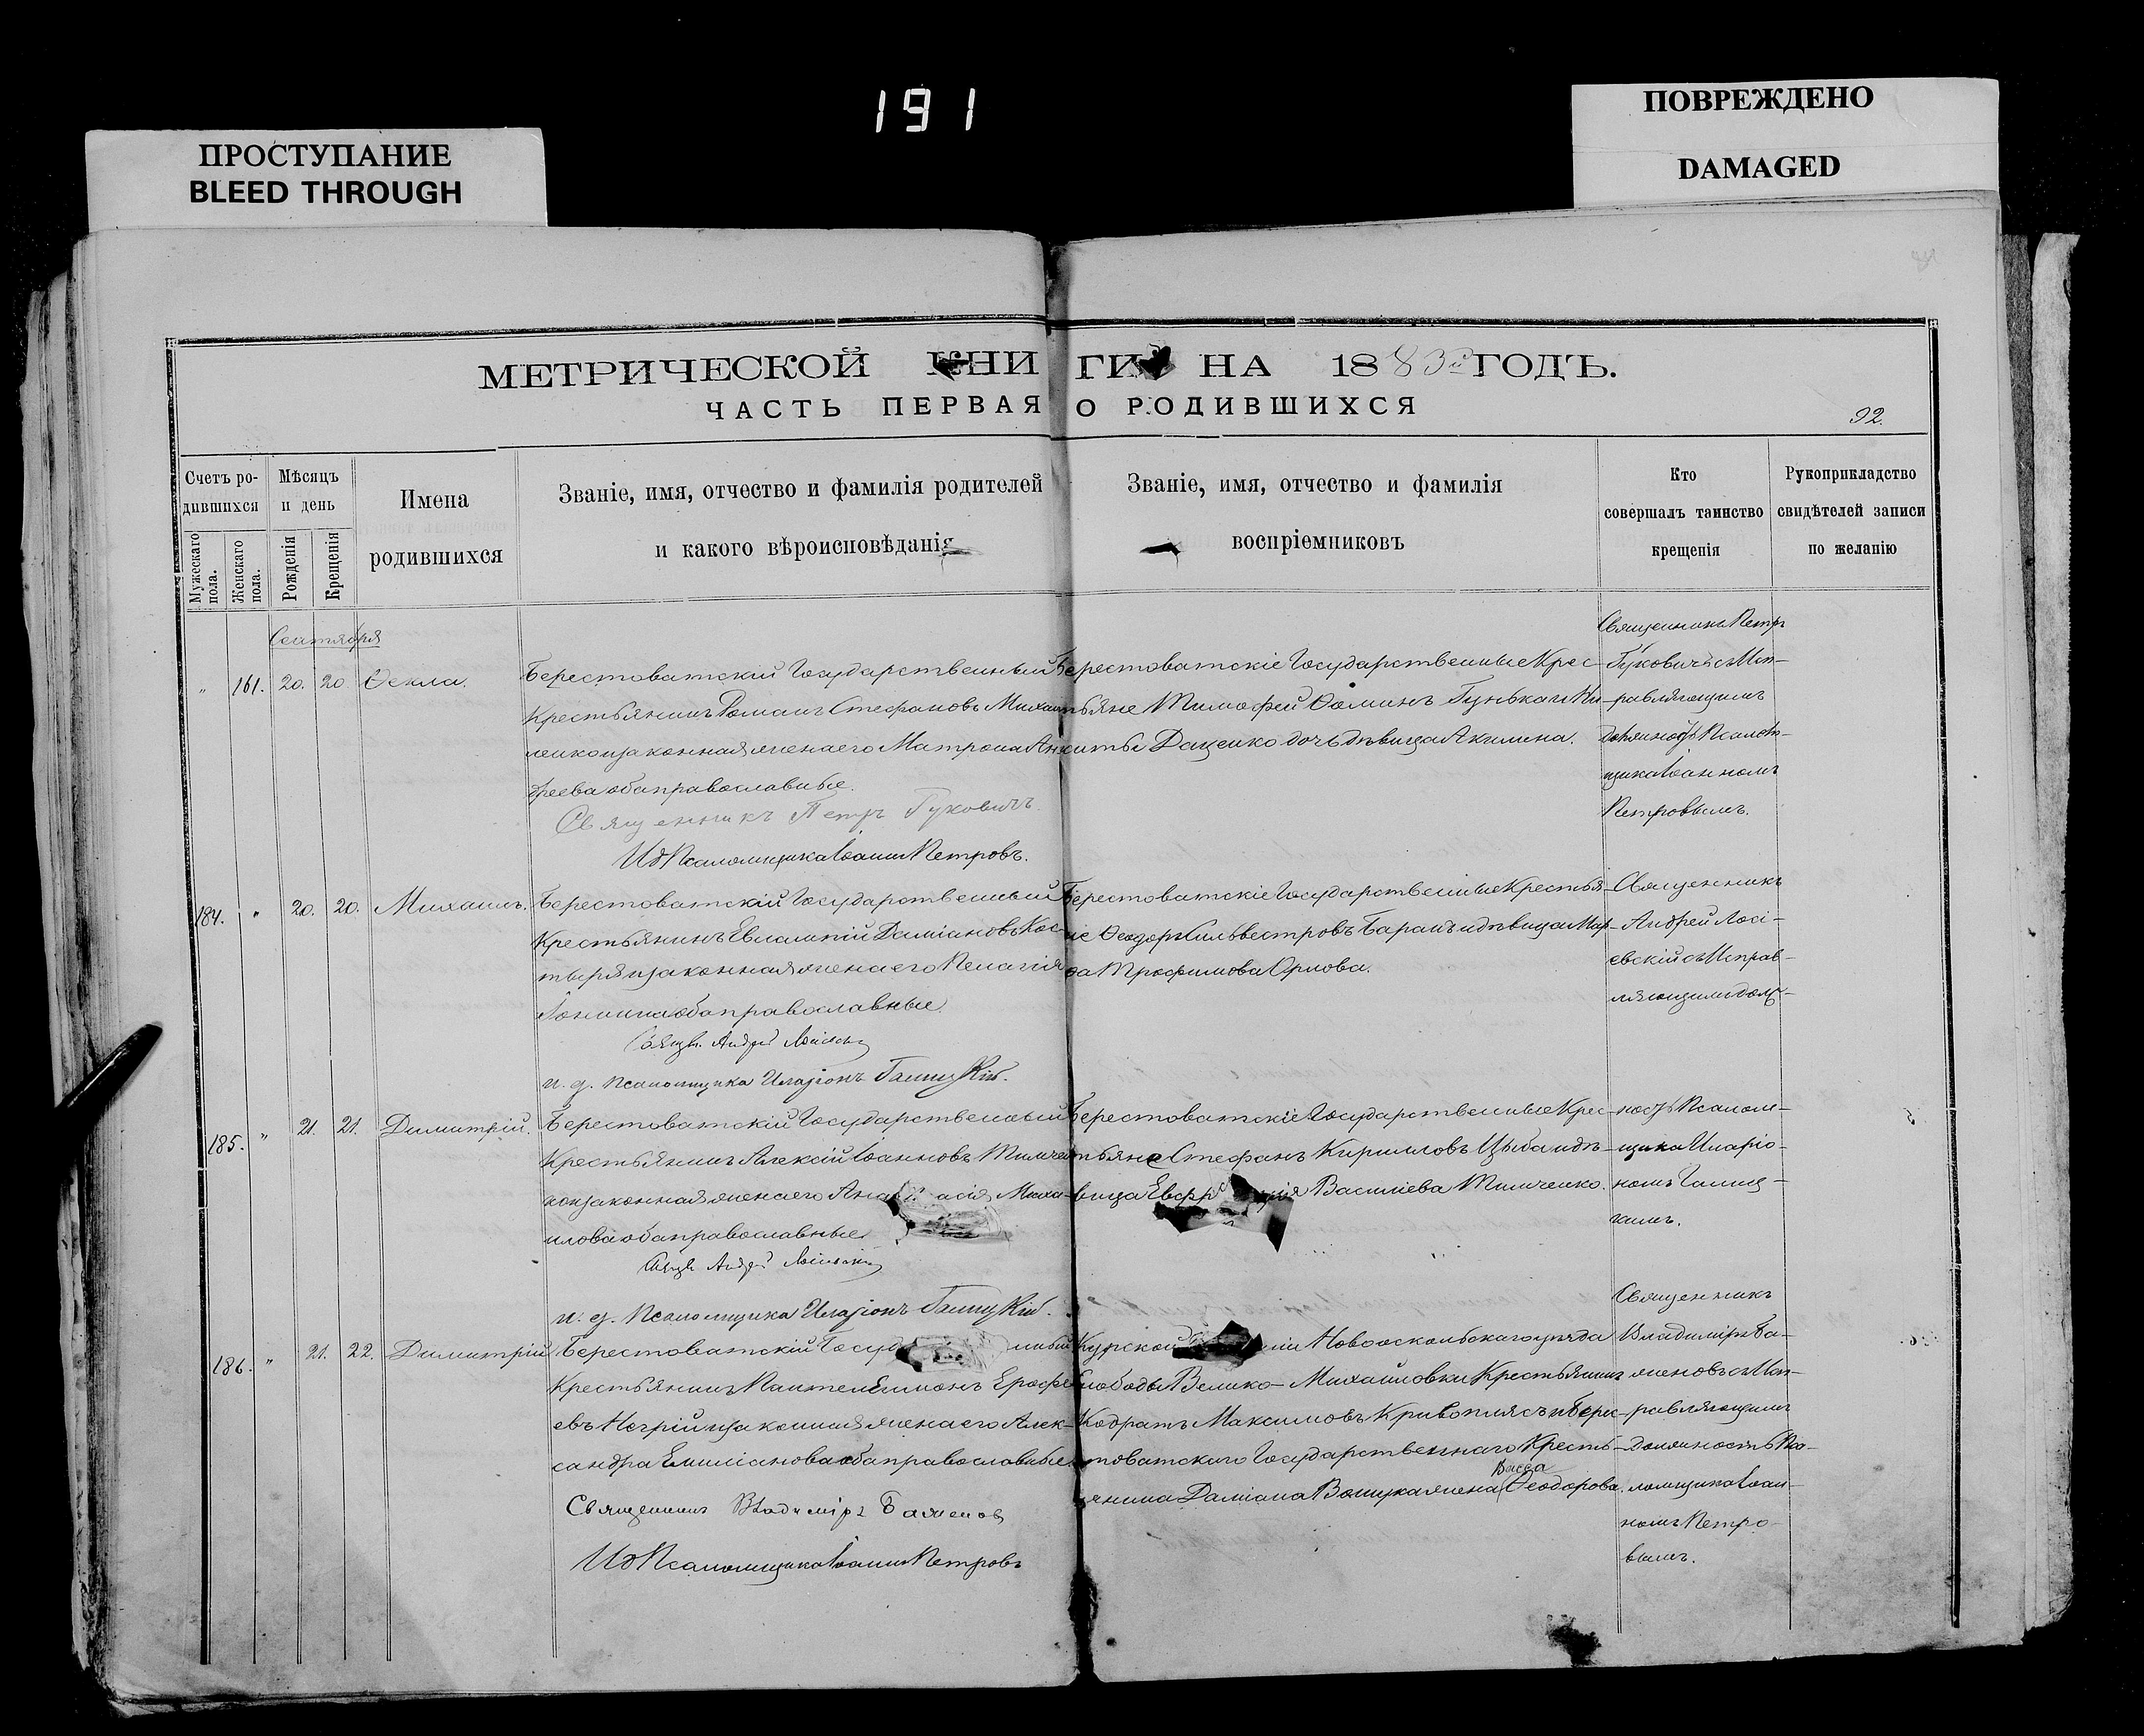 191
ПРОСТУПАНИЕ
BLEED THROUGH
ПОВРЕЖДЕНО
DAMAGED
МЕТРИЧЕСКОЙ КНИГИ НА 1883й ГОДЪ.
ЧАСТЬ ПЕРВАЯ О РОДИВШИХСЯ
92.
Счетъ ро-
дившихся
Мужескаго пола.
Женскаго пола.
Мѣсяцъ
и день
Рожденія
Крещенія
Имена
родившихся
Званіе, имя, отчество и фамилія родителей
и какого вѣроисповѣданія
Званіе, имя, отчество и фамилія
воспріемниковъ
Кто
совершалъ таинство
крещенія
Рукоприкладство
свидѣтелей записи
по желанію
Сентября
" 161. 20. 20 Ѳекла.
Берестоватскій Государственный
Крестьянинъ Романъ Стефановъ Михай-
ленко и законная жена его Матрона Ан-
дреева оба православные.
Священникъ Петръ Гуковичъ
ИдПсаломщика Іоаннъ Петровъ.
Берестоватскіе Государственные Крес-
тьяне Тимофей Ѳоминъ Гунька и Ни-
киты Даценко дочь дѣвица Акилина.
Священникъ Петръ
Гуковичъ съ Исп-
равляющимъ
должность Псалом-
щика Іоанномъ
Петровымъ.
184. " 20. 20. Михаилъ.
Берестоватскій Государственный
Крестьянинъ Евлампій Даміановъ Кос-
тыря и законная жена его Пелагія
Іонина оба православные.
Свящ. Андрей
и. д. псаломщика Иларіонъ Галицкій.
Берестоватскіе Государственные Крестья-
не Ѳеодоръ Сильвестровъ Баранъ и дѣвица Мар-
фа Трофимова Орлова.
Священникъ
Андрей Лосі-
евскій съ Исправ-
ляющимъ долж-
185. " 21. 21. Димитрій.
Берестоватскій Государственный
Крестьянинъ Алексій Іоанновъ Тимчен-
ко и законная жена его Анастасія Миха-
илова оба православные
Свящ. Андрей
и. д. псаломщика Иларіонъ Галицкій.
Берестоватскіе Государственные Крес-
тьяне Стефанъ Кирилловъ Цыба и дѣ-
вица Василіева Тимченко.
ность Псалом-
щика Иларіо-
номъ Галиц-
кимъ.
186. " 21. 22. Димитрій
Берестоватскій
Крестьянинъ Пантелеимонъ Ерофе-
евъ Негрій и законная жена его Алек-
сандра Емиліанова оба православные.
Священникъ Владиміръ Баженовъ
ИдПсаломщика Іоаннъ Петровъ
Курской Новооскольскаго уѣзда
Слободы Велико-Михайловки Крестьянинъ
Кодратъ Максимовъ Кривоплясъ и Берес-
товатскаго Государственнаго Кресть-
янина Даміана жена Васса Ѳеодорова.
Священникъ
Владиміръ Ба-
женовъ съ Исп-
равляющимъ
Должность Пса-
ломщика Іоан-
номъ Петро-
вымъ.